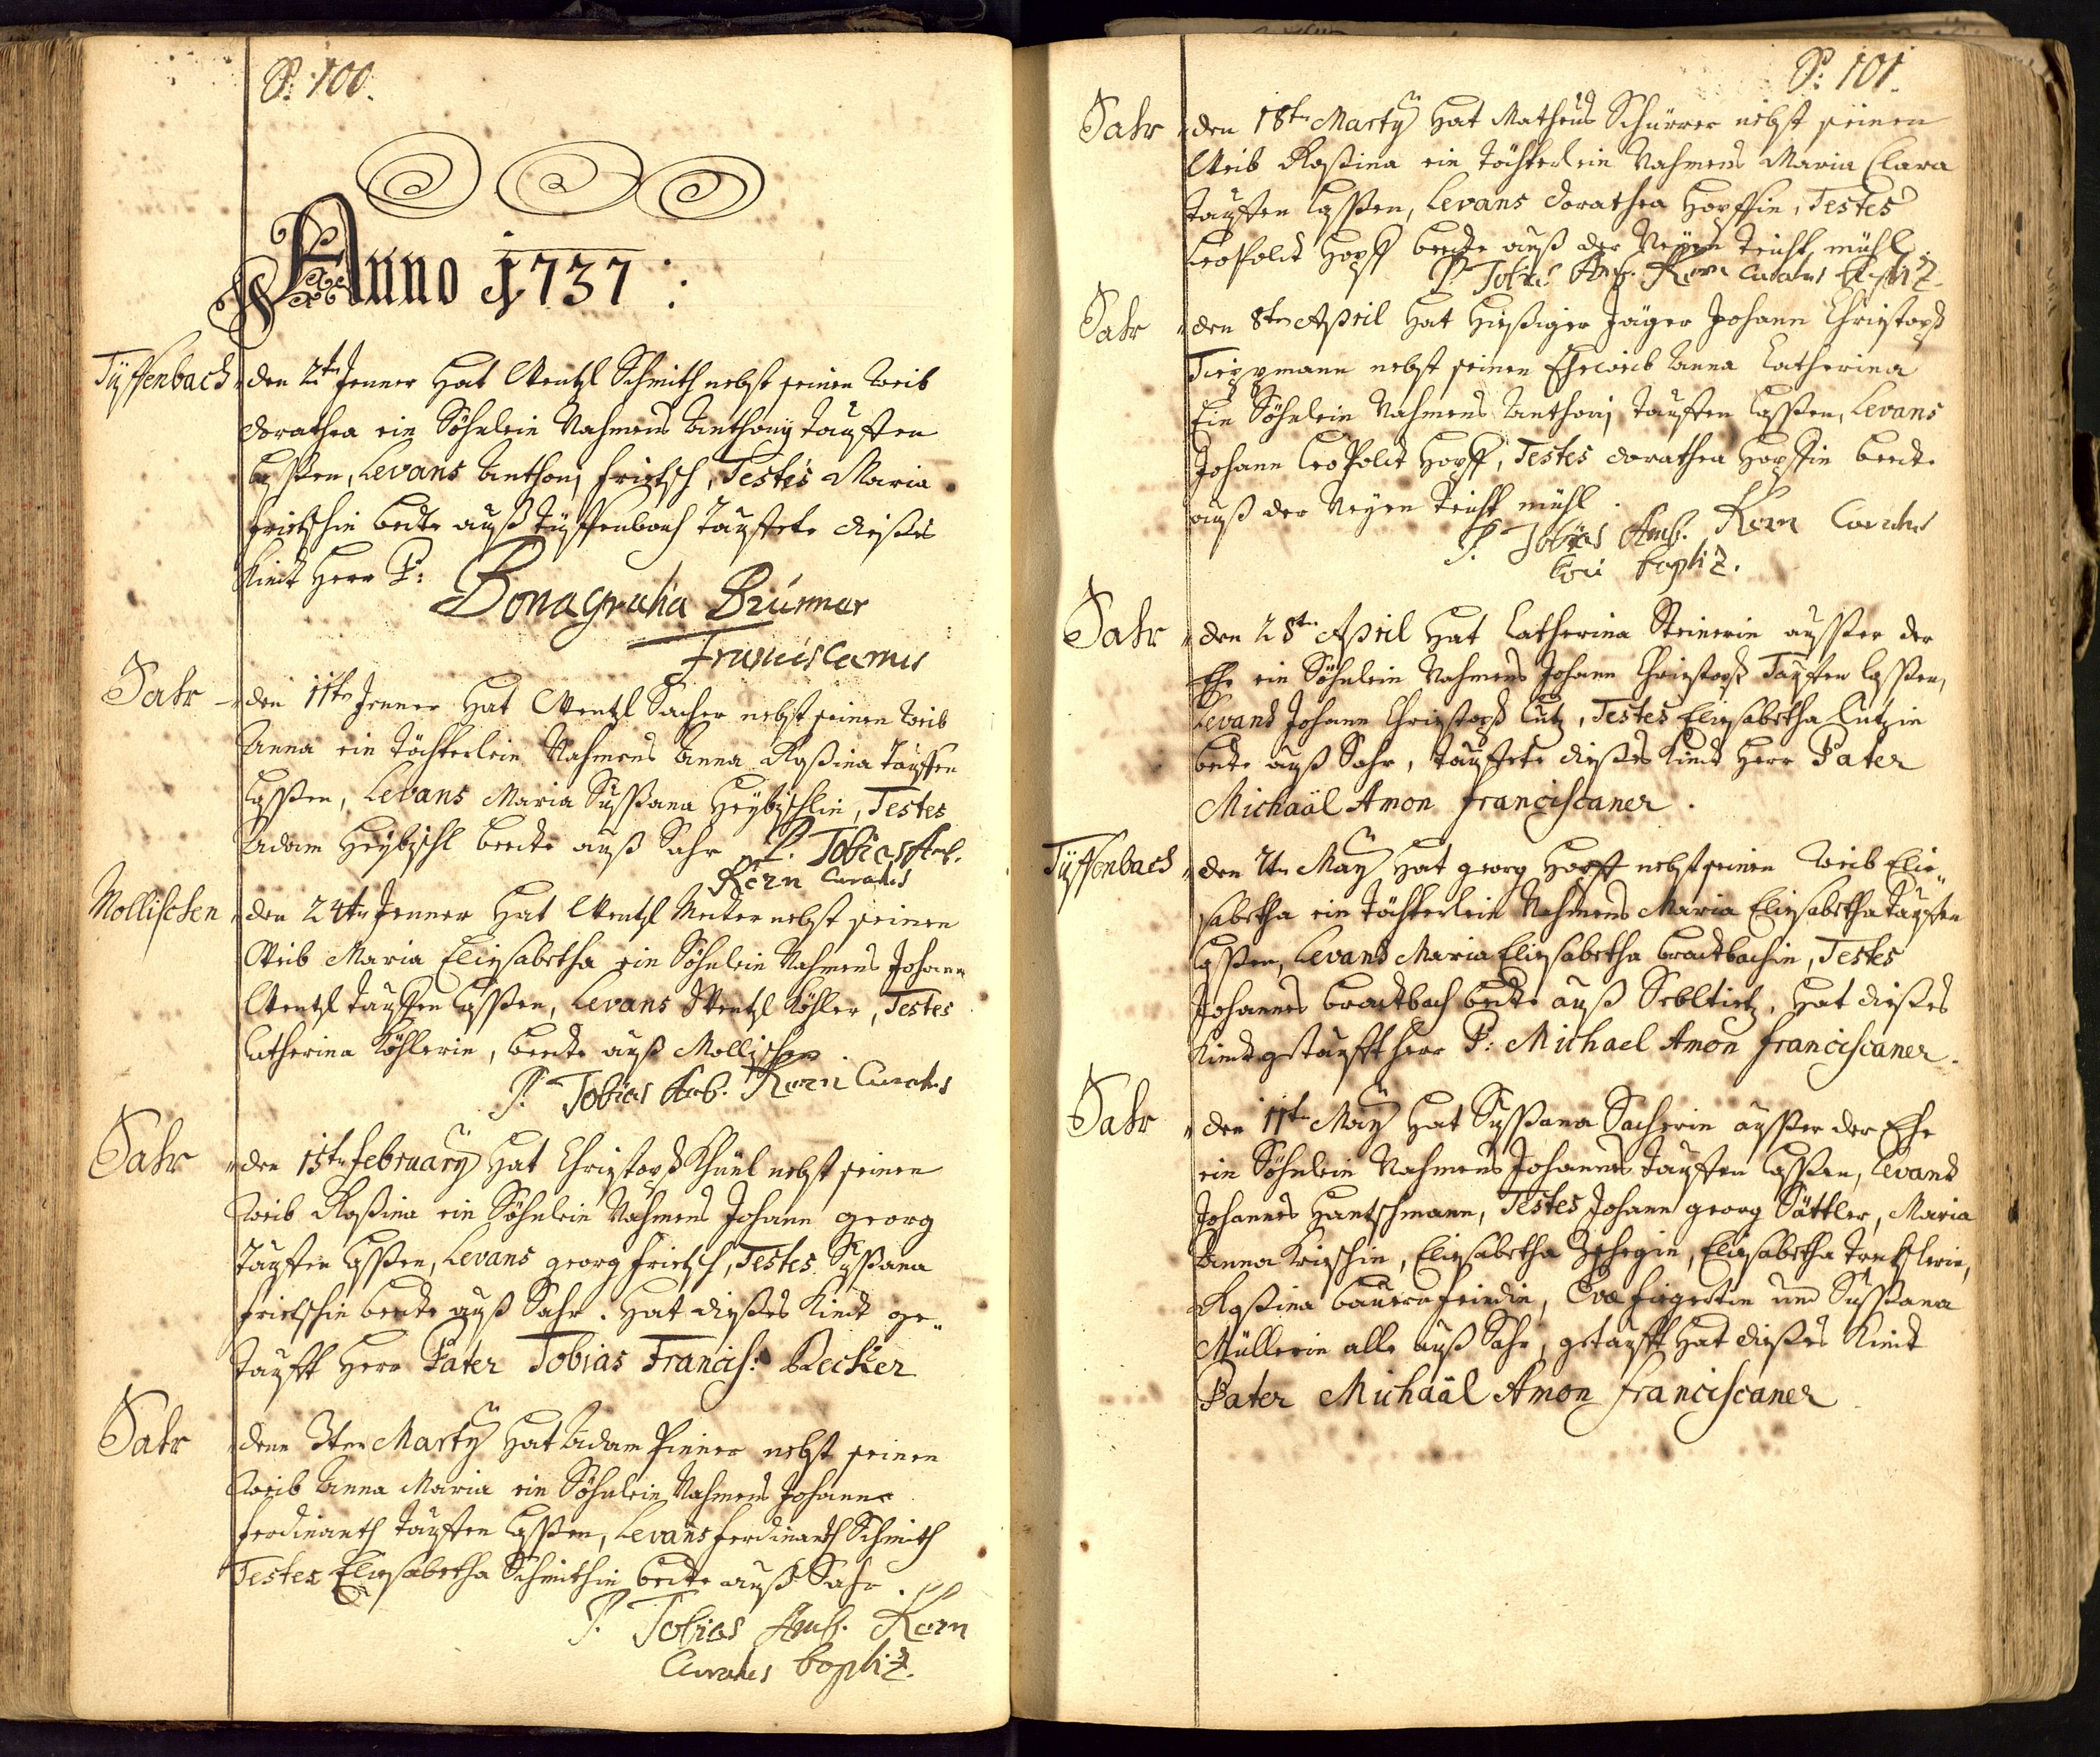 P: 100.
Anno 1737:
Tyffenbach den 2tn Jenner Hat Wentzl Schmith nebst seinen Weib
Dorathea ein Söhnlein Nahmens Anthonÿ tauffen
lassen, Levans Anthonj Frietsch, Testes Maria
Frietschin bede auß Tyffenbach tauffete dießes
Kindt Herr P:
Bonagratia Brunner
Franciscanus
Sahr den 11tn Jenner Hat Wentzl Sacher nebst seinen Weib
Anna ein Töchterlein Nahmens Anna Rosina tauffen
lassen, Levans Maria Sussana Heÿbischlin, Testes
Adam Heÿbischl beede auß Sahr P. Tobias Amb.
Kern Curatus
Mollischen den 24tn Jenner Hat Wentzl Meeter nebst seinen
Weib Maria Eliesabetha ein Söhnlein Nahmens Johann
Wentzl tauffen lassen, Levans Wentzl Köhler, Testes
Catherina Köhlerin, beede auß Mollischen.
P. Tobias Amb. Kern Curatus
Sahr den 15tn February Hat Christoph Khünl nebst seinen
Weib Rosina ein Söhnlein Nahmens Johann georg
tauffen lassen, Levans georg Frietsch, Testes Sussana
Frietschin beede auß Sahr. Hat dießes Kindt ge„
taufft Herr Pater Tobias Francis: Becker
Sahr denn 3ten Martÿ Hat Adam Pinner nebst seinen
Weib Anna Maria ein Söhnlein Nahmens Johann
Ferdinanth tauffen lassen, Levans Ferdinandt Schmith
Testes Eliesabetha Schmithin bede auß Sahr.
P. Tobias Amb. Kern
Curatus baptiz.
P: 101.
Sahr den 18tn Martÿ Hat Matheus Schürrer nebst seinen
Weib Rosina ein Töchterlein Nahmens Maria Clara
tauffen lassen, Levans Dorathea Hopffin, Testes
Leopoldt Hopff beede auß der Neÿen Teicht mühl.
P. Tobias Amb. Kern Curatus baptiz.
Sahr den 8tn April Hat Hießiger Jäger Johann Christoph
Tieppmann nebst seinen Eheweib Anna Catherina
Ein Söhnlein Nahmens Anthonj tauffen lassen, Levans
Johann Leopoldt Hopff, Testes Dorathea Hopffin beede
auß der Neÿen Teicht mühl.
P. Tobias Amb. Kern Curatus
loci baptiz.
Sahr den 28tn April Hat Catherina Steinerin ausser der
Ehe ein Söhnlein Nahmens Johann Christoph tauffen lassen,
Levans Johann Christoph Lutz, Testes Eliesabetha Lutzin
bede auß Sahr, tauffete dießes Kindt Herr Pater
Michaäl Amon Franciscaner.
Tyffenbach den 7tn Maÿ Hat georg Hopff nebst seinen Weib Elie„
sabetha ein Töchterlein Nahmens Maria Eliesabetha tauffen
lassen, Levans Maria Eliesabetha brodtbachin, Testes
Johannes brodtbach beede auß Sebltietz. Hat dießes
Kindt getaufft Herr P: Michael Amon Franciscaner.
Sahr den 11tn Maÿ Hat Sussana Sacherin ausser der Ehe
ein Söhnlein Nahmens Johannes tauffen lassen, Levans
Johannes Hantschmann, Testes Johann georg Sättler, Maria
Anna Krieschin, Eliesabetha, Eliesabetha,
Rosina bauernfeindin, Eva Fiegertin und Sussana
Müllerin alle auß Sahr, getaufft Hat dießes Kindt
Pater Michaäl Amon Franciscaner